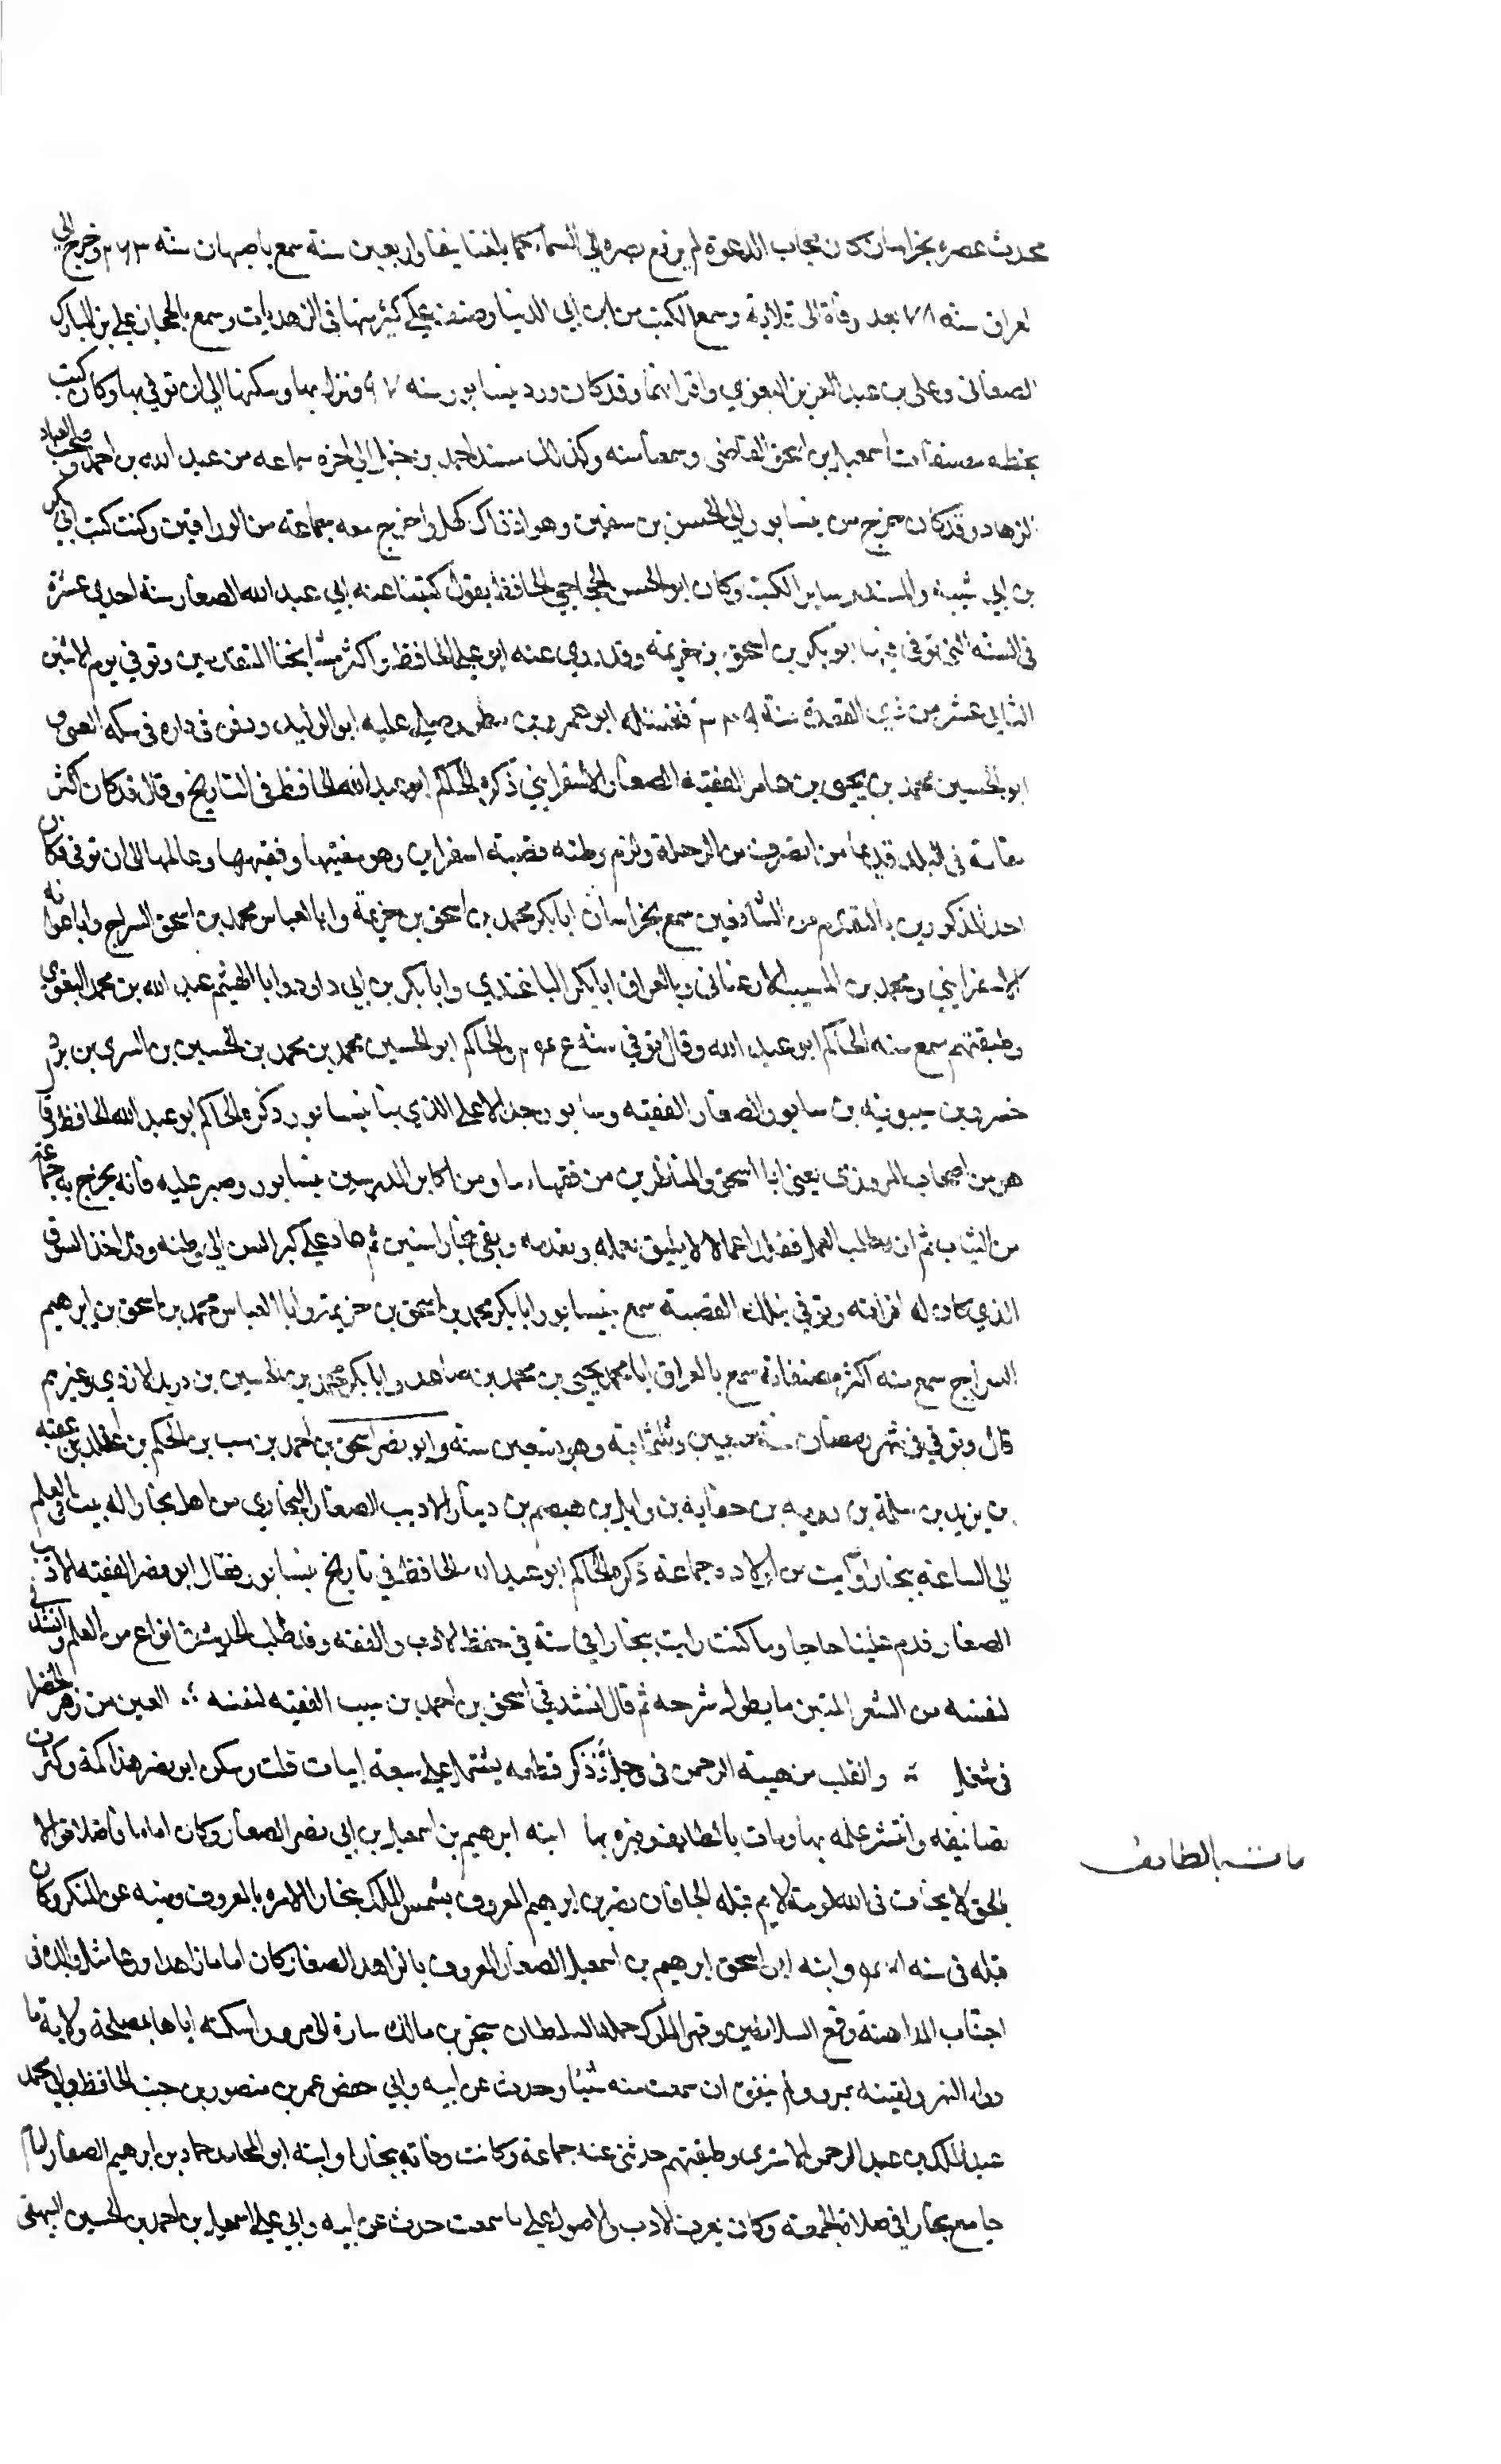 محدث عصره بخراسان كان مجاب الدعوة لم يرفع بصره الي السماء كما بلغنا نيفا واربعين سنة سمع باصبهان سنه ٢٦٣ وخرج الي
لعراق سنه ٧٨ بعد وفاة ابى قلابة وسمع الكتب من ابن ابي الدنيا وصنف علي كثير منها في الزهديات وسمع بالحجاز علي بن المبارك
الصغاني وعلى بن عبد العزيز البغوي واقرانهما وقد كان ورد نيسابور سنه ٩٧ ونزل بها وسكنها الي ان توفي بها وكان كتب
بخطه مصنفات اسمعيل بن اسحق القاضي وسمعها منه وكذلك مسند احمد بن حنبل الي اخره سماعه من عبد الله بن احمد وصحب العباد
الزهاد وقد كان خرج من نيسابور الي الحسن بن سفين وهو اذ ذاك كهل واخرج معه جماعة من الوراقين وكتب كتب ابي بكر
بن ابي شيبة والمسند وساير الكتب وكان ابو الحسن الحجاجي الحافظ يقول كتبنا عنه ابي عبد الله الصفار سنه احدي عشرة
في السنه التي توفي فيها ابو بكر بن اسحق بن خزيمه وقد روي عنه ابو علي الحافظ واكثر مشايخنا المتقدمين وتوفي يوم الاثنين
الثاني عشر من ذي القعدة سنة ٣٣٩ فغسله ابو عمرو بن مطر وصلي عليه ابو الوليد ودفن في داره في سكه العتبي و
ابو الحسين محمد بن يحيى بن عامر الفقيه الصفار الاسفرايني ذكره الحاكم ابو عبد الله الحافظ في التاريخ وقال قد كان اكثر
مقامه في البلد قديما من انصرف من الرحلة ولزم وطنه قصبة اسفراين وهو مفتيها وفقيهها وعالمها الى ان توفي فكان
احد المذكورين بالتقدم من الشافعيين سمع بخراسان ابا بكر محمد بن اسحق بن خزيمة وابا العباس محمد بن اسحق السراج وابا عوانه
الاسفرايني ومحمد بن المسيب الارغياني وبالعراق ابا بكر الباغندي وابا بكر بن ابي داود وابا الهيثم عبد الله بن محمد البغوي
وطبقتهم سمع منه الحاكم ابو عبد الله وقال توفي سنه والحاكم ابو الحسين محمد بن محمد بن الحسين بن السري بن يزد
خسره بن سيبويه بن سابور الصفار الفقيه وسابور جده الاعلي الذي بنا نيسابور ذكره الحاكم ابو عبد الله الحافظ وقا
هو من اصحاب المروزي يعني ابا اسحق والمناظرين من فقهاءنا ومن اكابر المدرسين بنيسابور وصبر عليه فانه تخرج به جماعة
من الشباب ثم انه طلب العمل فقلد اعمالا لا يليق بعلمه وتقدمه وبقي ببخارا سنين ثم عاد علي كبر السن الي وطنه وقد اخذ السوق
الذي كان له اقرانه وتوفي بتلك القصبة سمع بنيسابور ابا بكر محمد بن اسحق بن خزيمة وابا العباس محمد بن اسحق بن ابرهيم
السراج سمع منه اكثر مصنفاته سمع بالعراق ابا محمد يحيى بن محمد بن صاعد وابا بكر محمد بن الحسين بن دريد الازدي وغيرهم
قال وتوفي في شهر رمضان سنه سبعين وثلثمائة وهو ابن تسعين سنة وابو نصر اسحق بن احمد بن شيب بن الحكم بن اقلد بن عقبه
بن يزيد بن سلمة بن رويه بن خفاته بن وايل بن هيصم بن ديان الاديب الصفار البخاري من اهل بخارا له بيت في العلم
الي الساعة ببخارا رأيت من اولاده جماعة ذكره الحاكم ابو عبد الله الحافظ في تاريخ نيسابور فقال ابو نصر الفقيه الاديب
الصفار قدم علينا حاجا وما كنت رايت ببخارا في سنه في حفظ الادب والفقه وقد طلب الحديث في انواع من العلم وانشد
لنفسه من الشعر المتين ما يطول شرحه ثم قال انشدني اسحق بن احمد بن شيب الفقيه لنفسه ؞ العين من زهر الخضرا
في شغل ؞ والقلب من هيبة الرحمن في وجل فذكر قطعه يشتمل علي سبعة ابيات قلت وسكن ابو نصر هذا مكة وكثرت
تصانيفه وانتشر علمه بها ومات بالطايف وقبره بها ابنه ابرهيم بن اسمعيل بن ابي نصر الصفار وكان اماما فاضلا قوالا
بالحق لا يخاف في الله لومة لايم قتله الخاقان نصر بن ابرهيم المعروف بشمس الملك ببخارا لامره بالمعروف ونهيه عن المنكر وكان
قتله في سنه ٤٦١ وابنه ابو اسحق ابرهيم بن اسمعيل الصفار المعروف بالزاهد الصفار كان اماما زاهدا ورعا مثل والده في
اجتناب المداهنة وقمع السلاطين وقهر الملوك حمله السلطان سنجر بن مالك ساره الى مرو واسكنه اياها لمصلحة ولاية ما
وراء النهر ولقيته بمرو ولم يتفق ان سمعت منه شيئا وحدث عن ابيه وابي حفص عمر بن منصور بن جنب الحافظ وابي محمد
عبد الملك بن عبد الرحمن الاسترى وطبقتهم حدثني عنه جماعة وكانت وفاته ببخارا وابنه ابو المحامد حماد بن ابرهيم الصفار امام
جامع بخارا في صلاة الجمعة وكان يعرف الادب والاصول علي ما سمعت حدث عن ابيه وابي علي اسمعيل بن احمد بن الحسين البيهقي
مات بالطائف